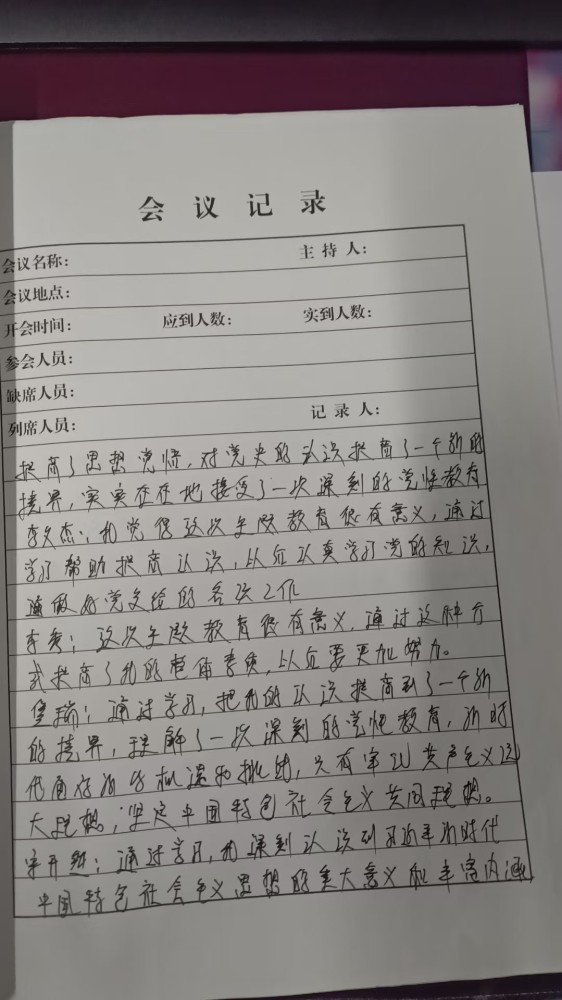 会议记录
会议名称： 主持人：
会议地点：
开会时间： 应到人数： 实到人数：
参会人员：
缺席人员：
列席人员： 记录人：
提高了思想觉悟，对党史的认识提高了一个新的
境界，实实在在地接受了一次深刻的党性教育
李文杰：我觉得这次主题教育很有意义，通过
学习帮助提高认识，以后认真学习党的知识，
做好党交给的各项工作
李秀：这次主题教育很有意义，通过这种方
式提高了我的整体素质，以后要更加努力。
通过学习，把我的认识提高到了一个新
的境界，理解了一次深刻的党性教育，新时
代面存的机遇和挑战，只有牢记共产主义远
大理想，坚定中国特色社会主义共同理想。
通过学习，我深刻认识到习近平新时代
中国特色社会主义思想的重大意义和丰富内涵